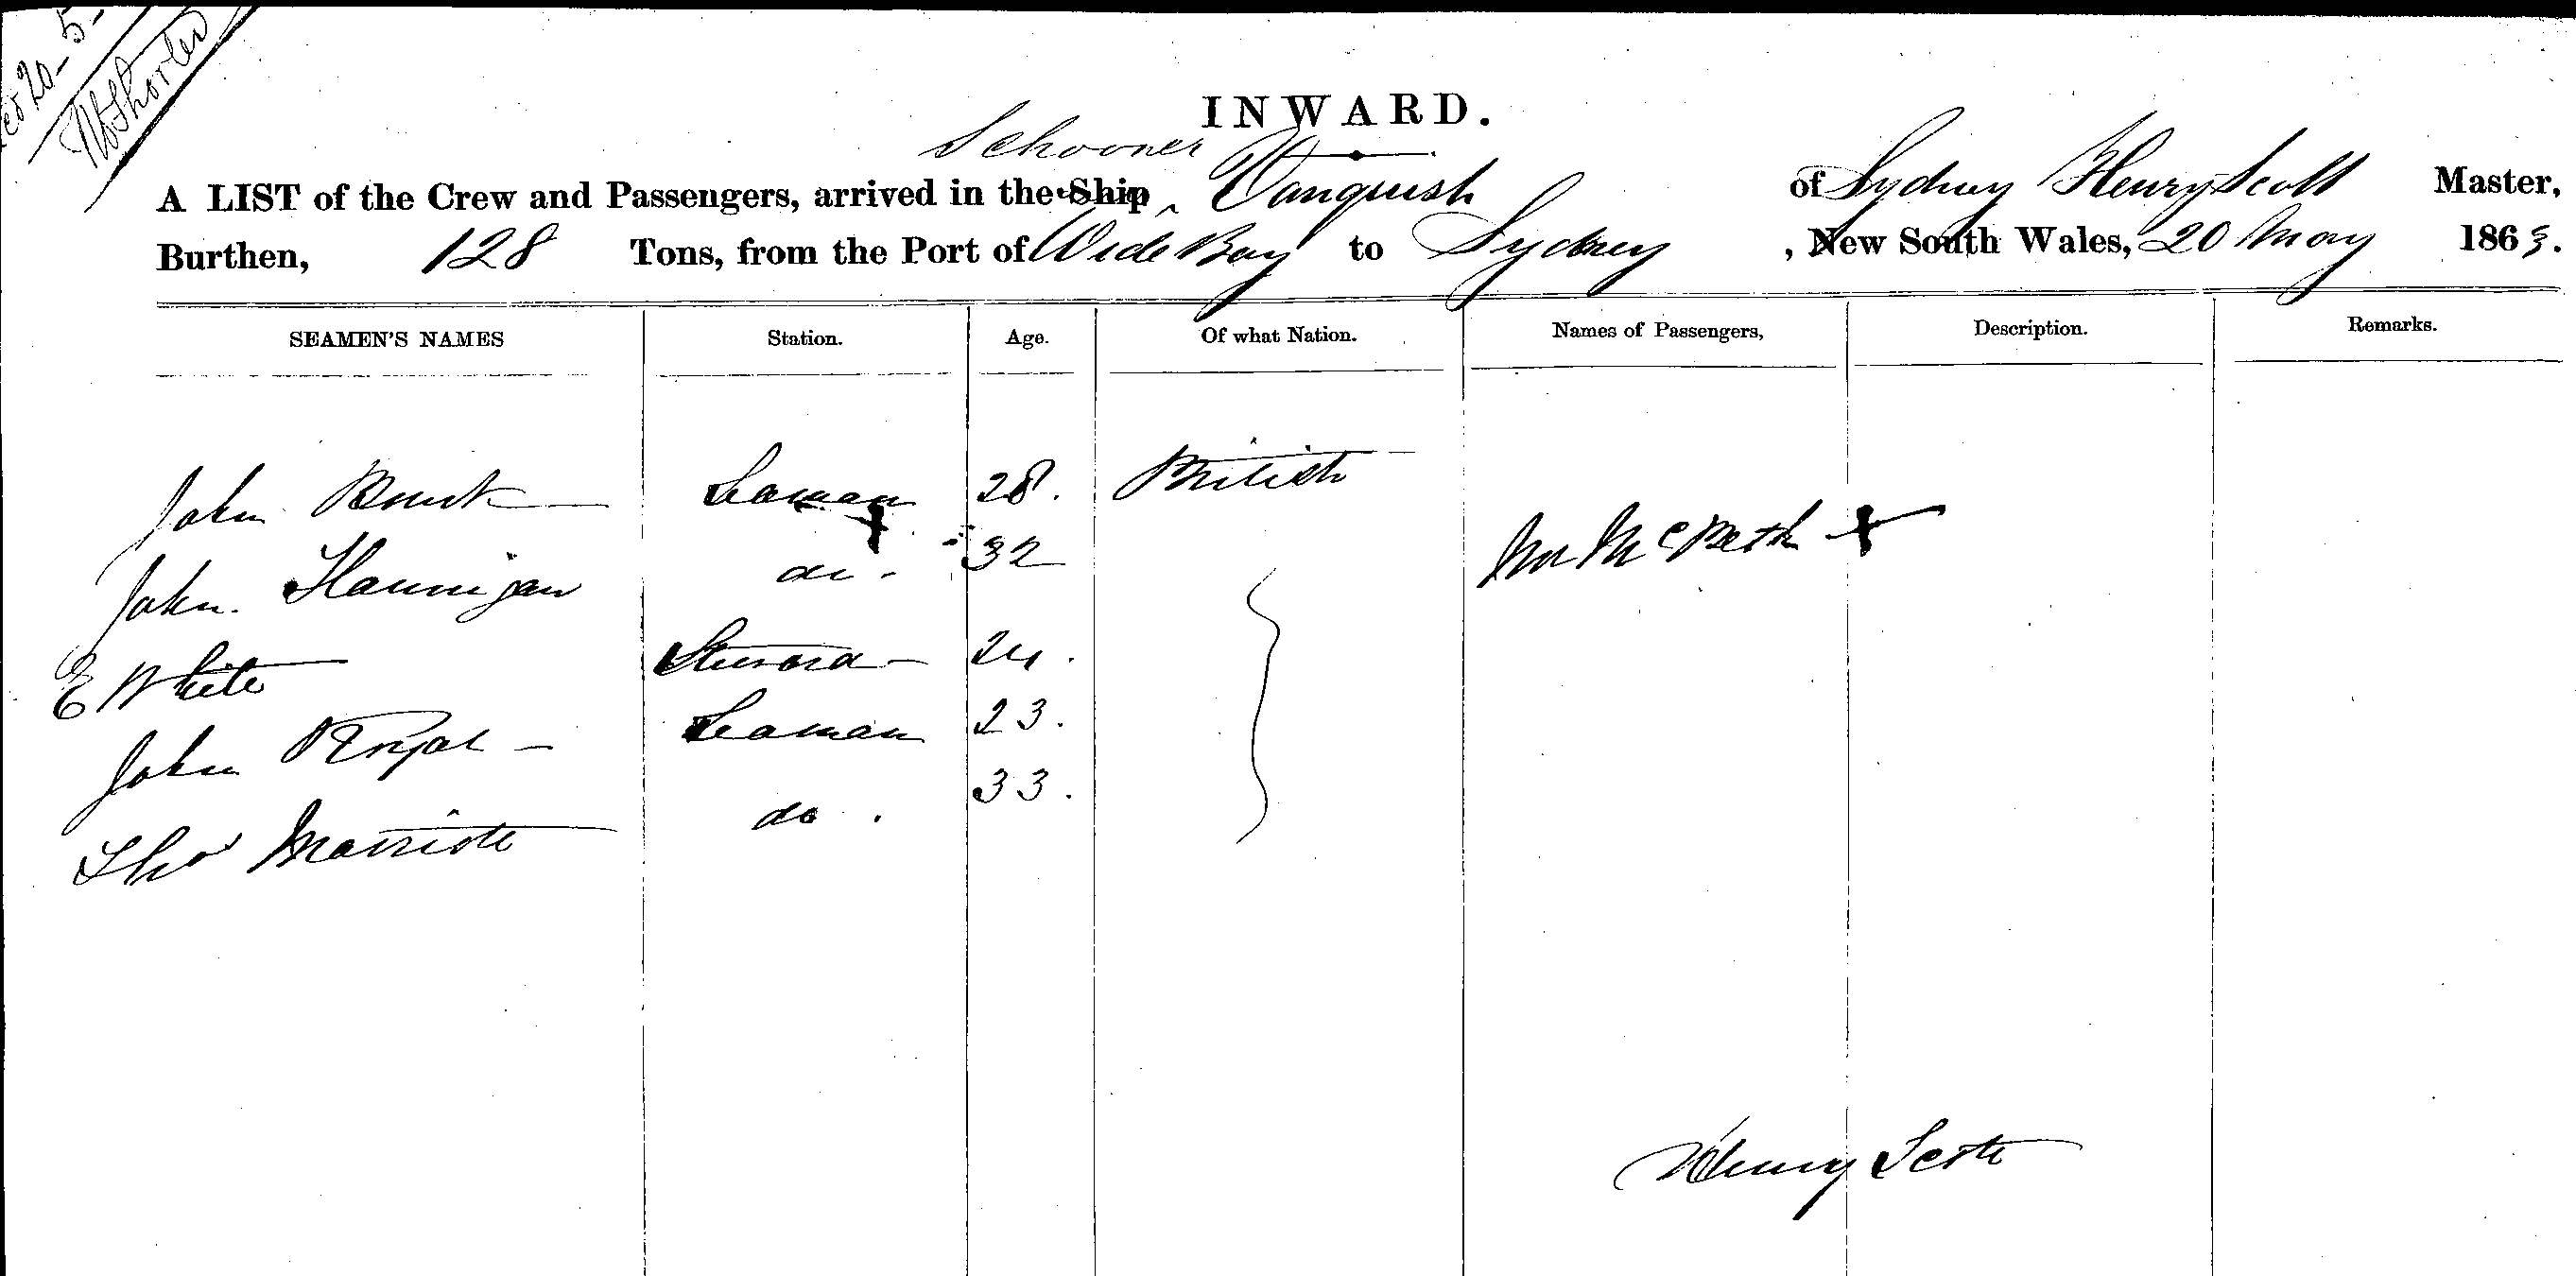 20-5-
INWARD.
Schooner
A LIST of the Crew and Passengers, arrived in the Ship ^ Vanquish of Sydney Henry Scott Master,
Burthen, 128 Tons, from the Port of Wide Bay to Sydney , New South Wales, 20 May 1863.
SEAMEN'S NAMES Station. Age. Of what Nation. Names of Passengers, Description. Remarks.
John Seaman 28. British
John Hannigan do. 32 Mr McBeth
E White Steward 24.
John Seaman 23.
Thos Marriott do. 33.
Henry Scott